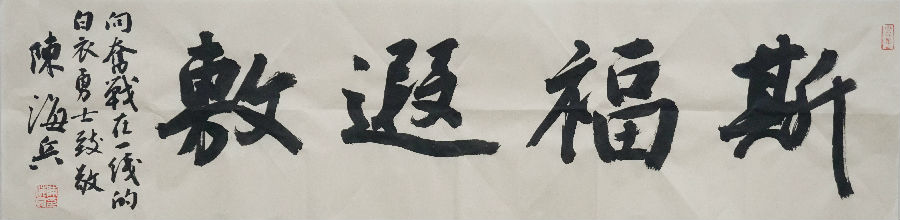 斯福遐敷
向奋战在一线的
白衣勇士致敬
陳海兵